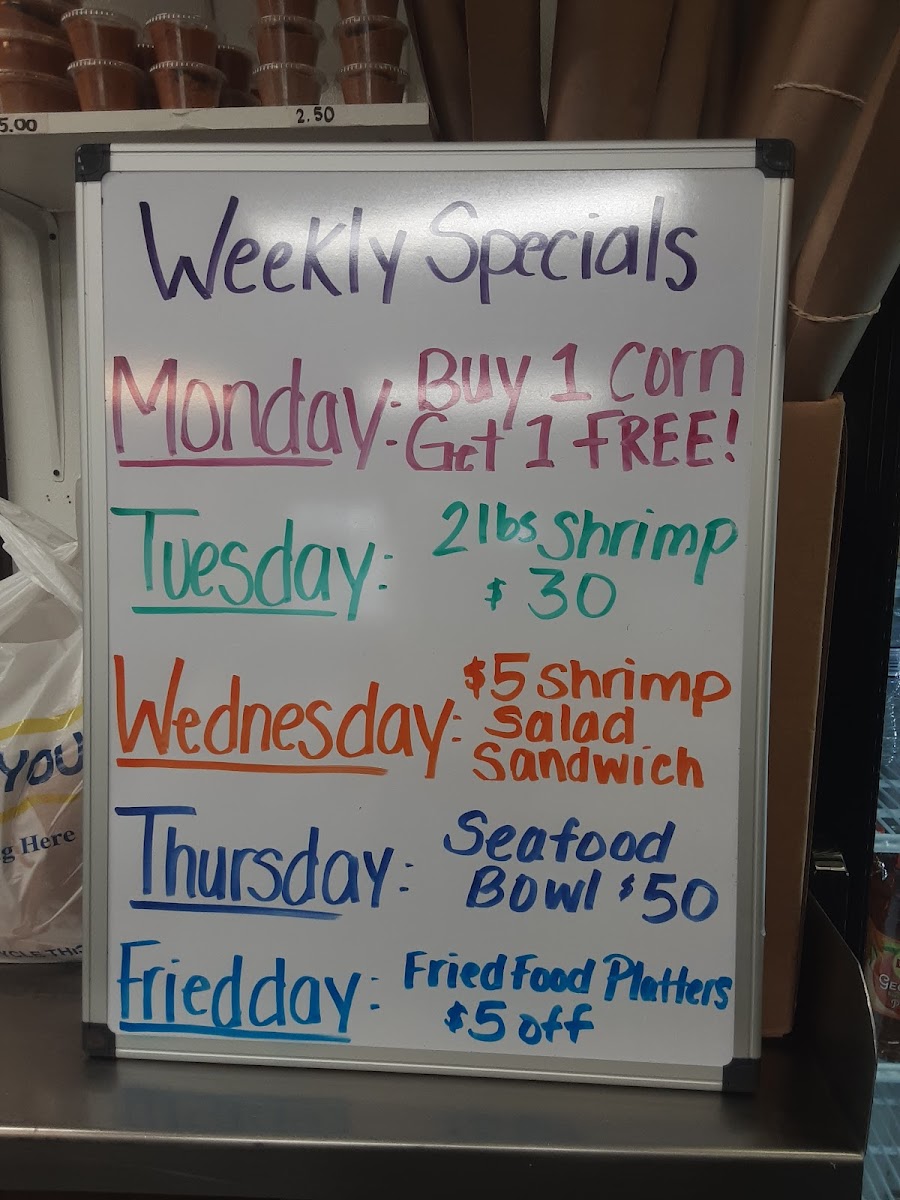 5.00
2.50
Weekly Specials
Monday: Buy 1 Corn
Get 1 FREE!
Tuesday: 2lbs Shrimp
$30
Wednesday: $5 Shrimp
Salad
Sandwich
Thursday: Seafood
Bowl $50
Friedday: Fried Food Platters
$5 off
YOU
g Here